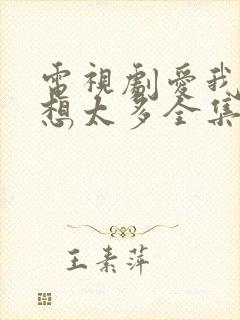 電視劇愛我
想太多全集
王素萍